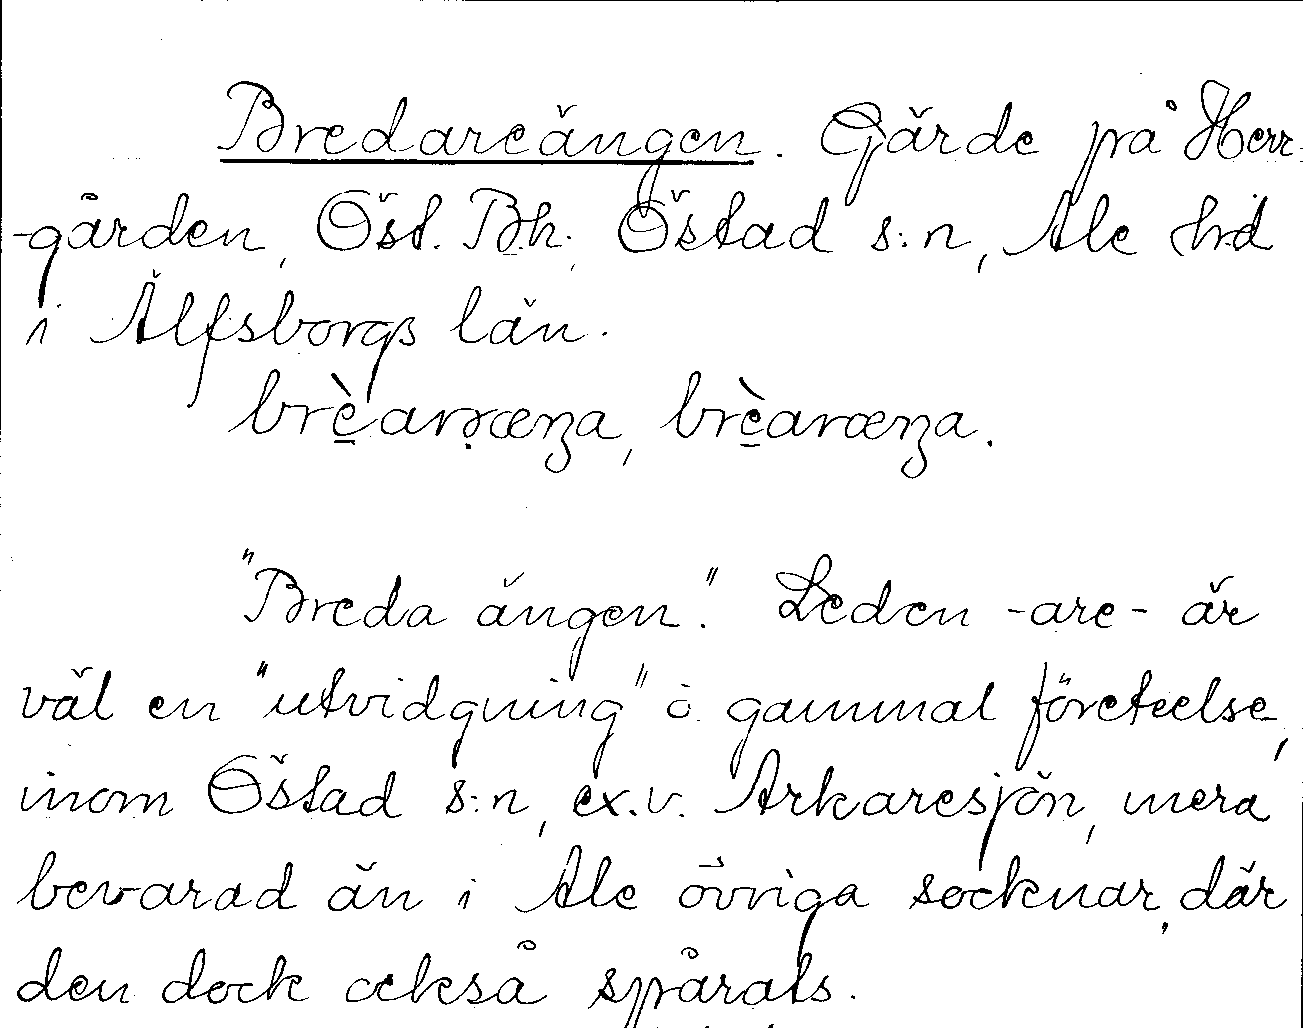 Bredareängen. Gärde på Herr-
-gården, Öst. Bh. Östad s:n, Ale hd
i Älfsborgs län.
brèarəæŋa, brèaræŋa.
"Breda ängen". Leden -are- är
väl en "utvidgning" o. gammal företeelse,
inom Östad s:n, ex.v. Arkaresjön, mera
bevarad än i Ale övriga socknar, där
den dock också spårats.